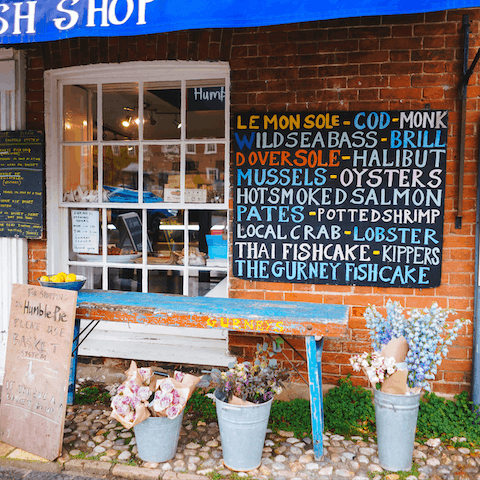 SH SHOP
Humb
LEMON SOLE - COD - MONK
WILD SEA BASS - BRILL
DOVER SOLE - HALIBUT
MUSSELS - OYSTERS
HOT SMOKED SALMON
PATES - POTTED SHRIMP
LOCAL CRAB - LOBSTER
THAI FISHCAKE - KIPPERS
THE GURNEY FISHCAKE
GURNEYS
Humble Pie
PLEASE
BASKET